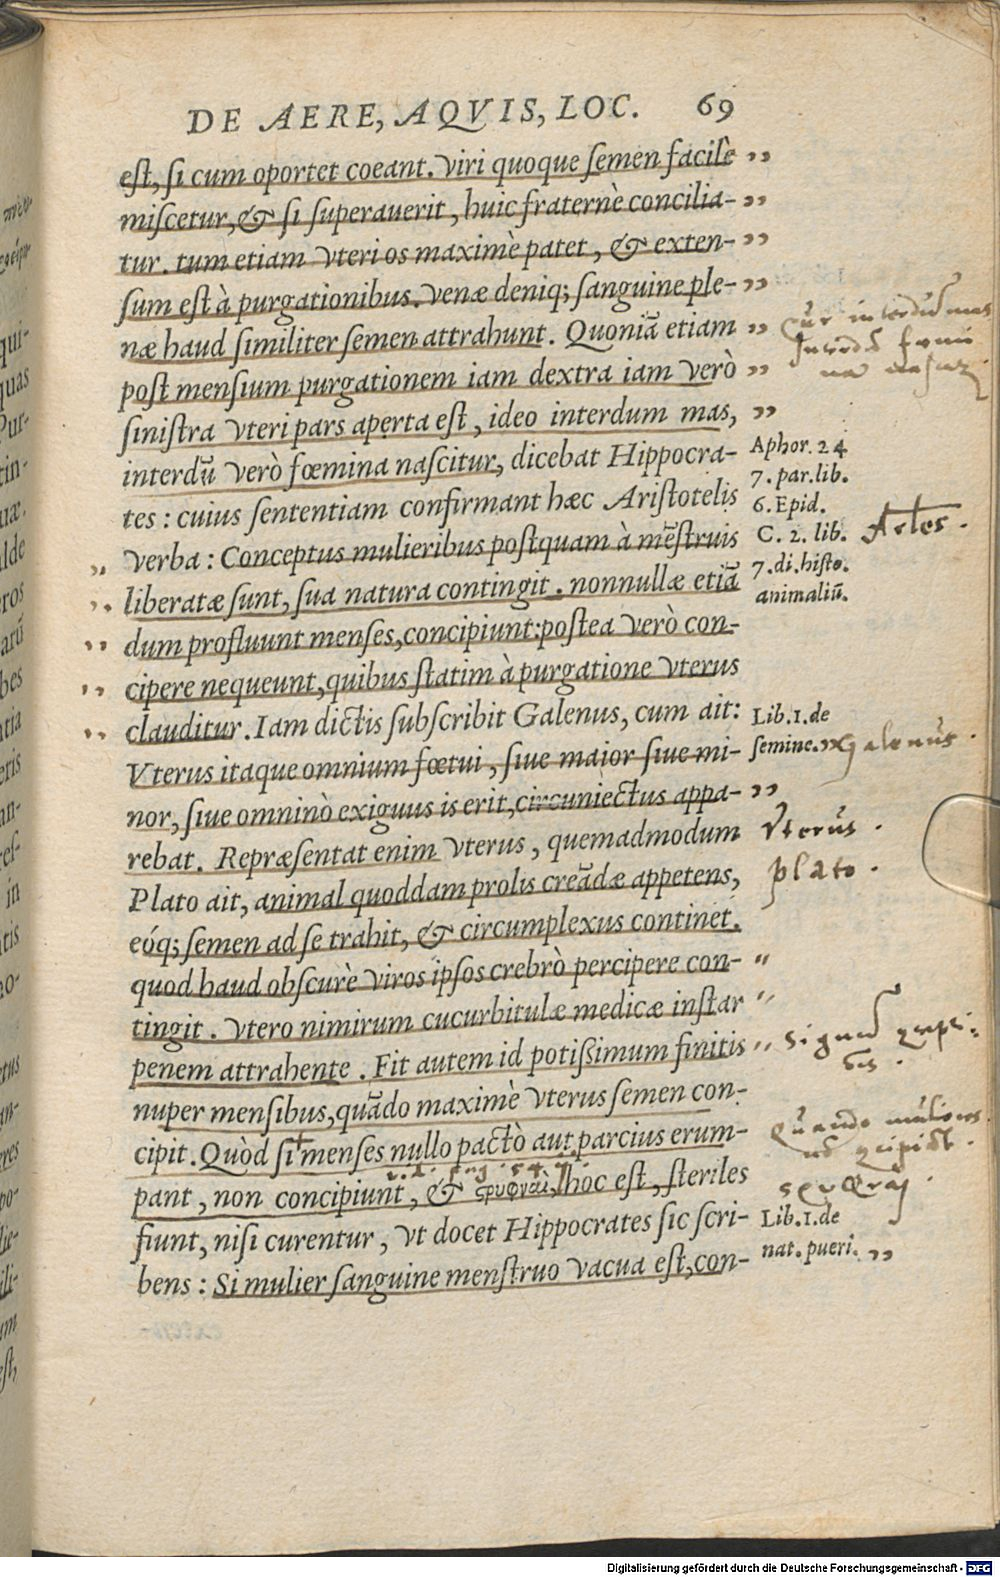 DE AERE, AQVIS, LOC. 69
est, si cum oportet coeant. Viri quoque semen facilè ,,
miscetur, & si superauerit, huic fraternè concilia- ,,
tur. tum etiam vteri os maximè patet, & exten- ,,
sum est à purgationibus. Venæ deniq; sanguine ple- ,,
næ haud similiter semen attrahunt. Quoniā etiam ,,
post mensium purgationem iam dextra iam verò ,,
sinistra vteri pars aperta est, ideo interdum mas, ,,
interdū verò fœmina nascitur, dicebat Hippocra-
tes: cuius sententiam confirmant hæc Aristotelis
verba: Conceptus mulieribus postquam à mēstruis
,, liberatæ sunt, sua natura contingit. nonnullæ etiā
,, dum profluunt menses, concipiunt: postea verò con-
,, cipere nequeunt, quibus statim à purgatione vterus
,, clauditur. Iam dictis subscribit Galenus, cum ait:
Vterus itaque omnium fœtui, siue maior siue mi-
nor, siue omninò exiguus is erit, circuniectus appa- ,,
rebat. Repræsentat enim vterus, quemadmodum
Plato ait, animal quoddam prolis creādæ appetens,
eóq; semen ad se trahit, & circumplexus continet.
quod haud obscurè viros ipsos crebrò percipere con- ,,
tingit. vtero nimirum cucurbitulæ medicæ instar ,,
penem attrahente. Fit autem id potissimum finitis ,,
nuper mensibus, quādo maximè vterus semen con-
cipit. Quòd si menses nullo pactò aut parcius erum-
pant, non concipiunt, & τρυφναὶ, hoc est, steriles
fiunt, nisi curentur, vt docet Hippocrates sic scri-
bens: Si mulier sanguine menstruo vacua est, con-
Cur interdū mas
Interdū fœmi
na nascit
Aphor. 24
7. par. lib.
6. Epid.
C. 2. lib.
7. di. histo.
animaliū.
Artes.
Lib. 1. de
semine. ,,
Galenus.
Vterus.
plato.
Quando mulieres
Lib. 1. de
nat. pueri. ,,
Digitalisierung gefördert durch die Deutsche Forschungsgemeinschaft - DFG